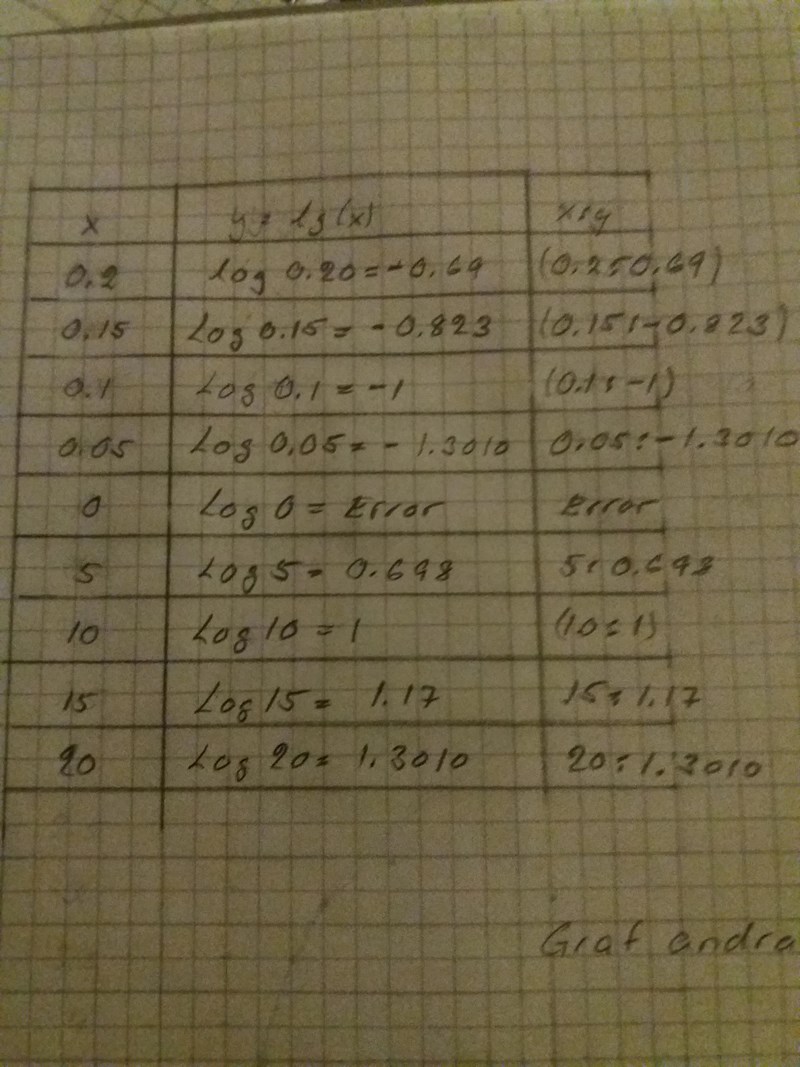 x y = lg(x) x;y
0.2 log 0.20 = -0.69 (0.2;0.69)
0.15 Log 0.15 = -0.823 (0.15;-0.823)
0.1 Log 0.1 = -1 (0.1;-1)
0.05 Log 0.05 = -1.3010 0.05;-1.3010
0 Log 0 = Error Error
5 Log 5 = 0.698 5;0.698
10 Log 10 = 1 (10;1)
15 Log 15 = 1.17 15;1.17
20 Log 20 = 1.3010 20;1.3010
Graf andra